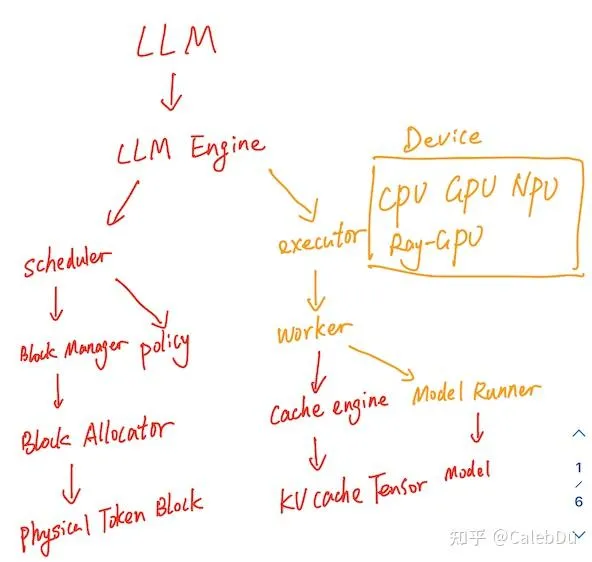 LLM
LLM Engine
Device
CPU GPU NPU
Ray-GPU
executor
scheduler
worker
Block Manager policy
Cache engine
Model Runner
Block Allocator
KV cache Tensor
Model
Physical Token Block
1
/
6
知乎 @CalebDu